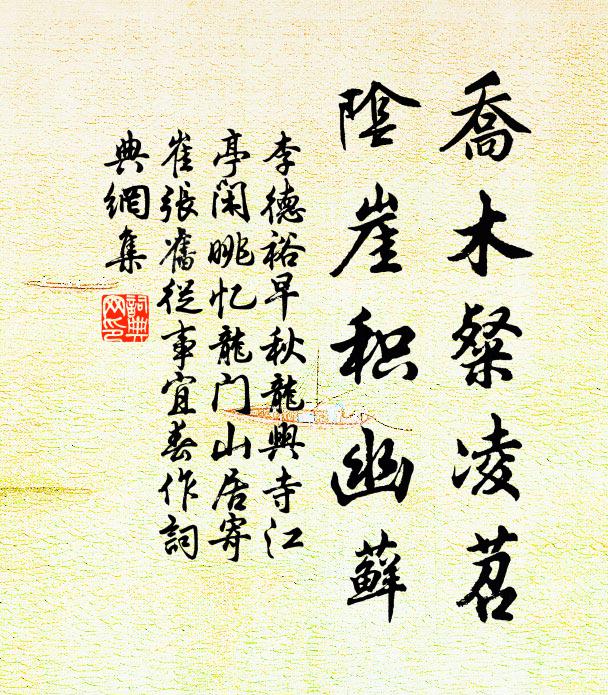 喬木粲凌苕
陰崖积幽蘚
李德裕早秋龍興寺江
亭闲眺忆龍门山居寄
崔張舊從事宜春作詞
典網集
詞典网印